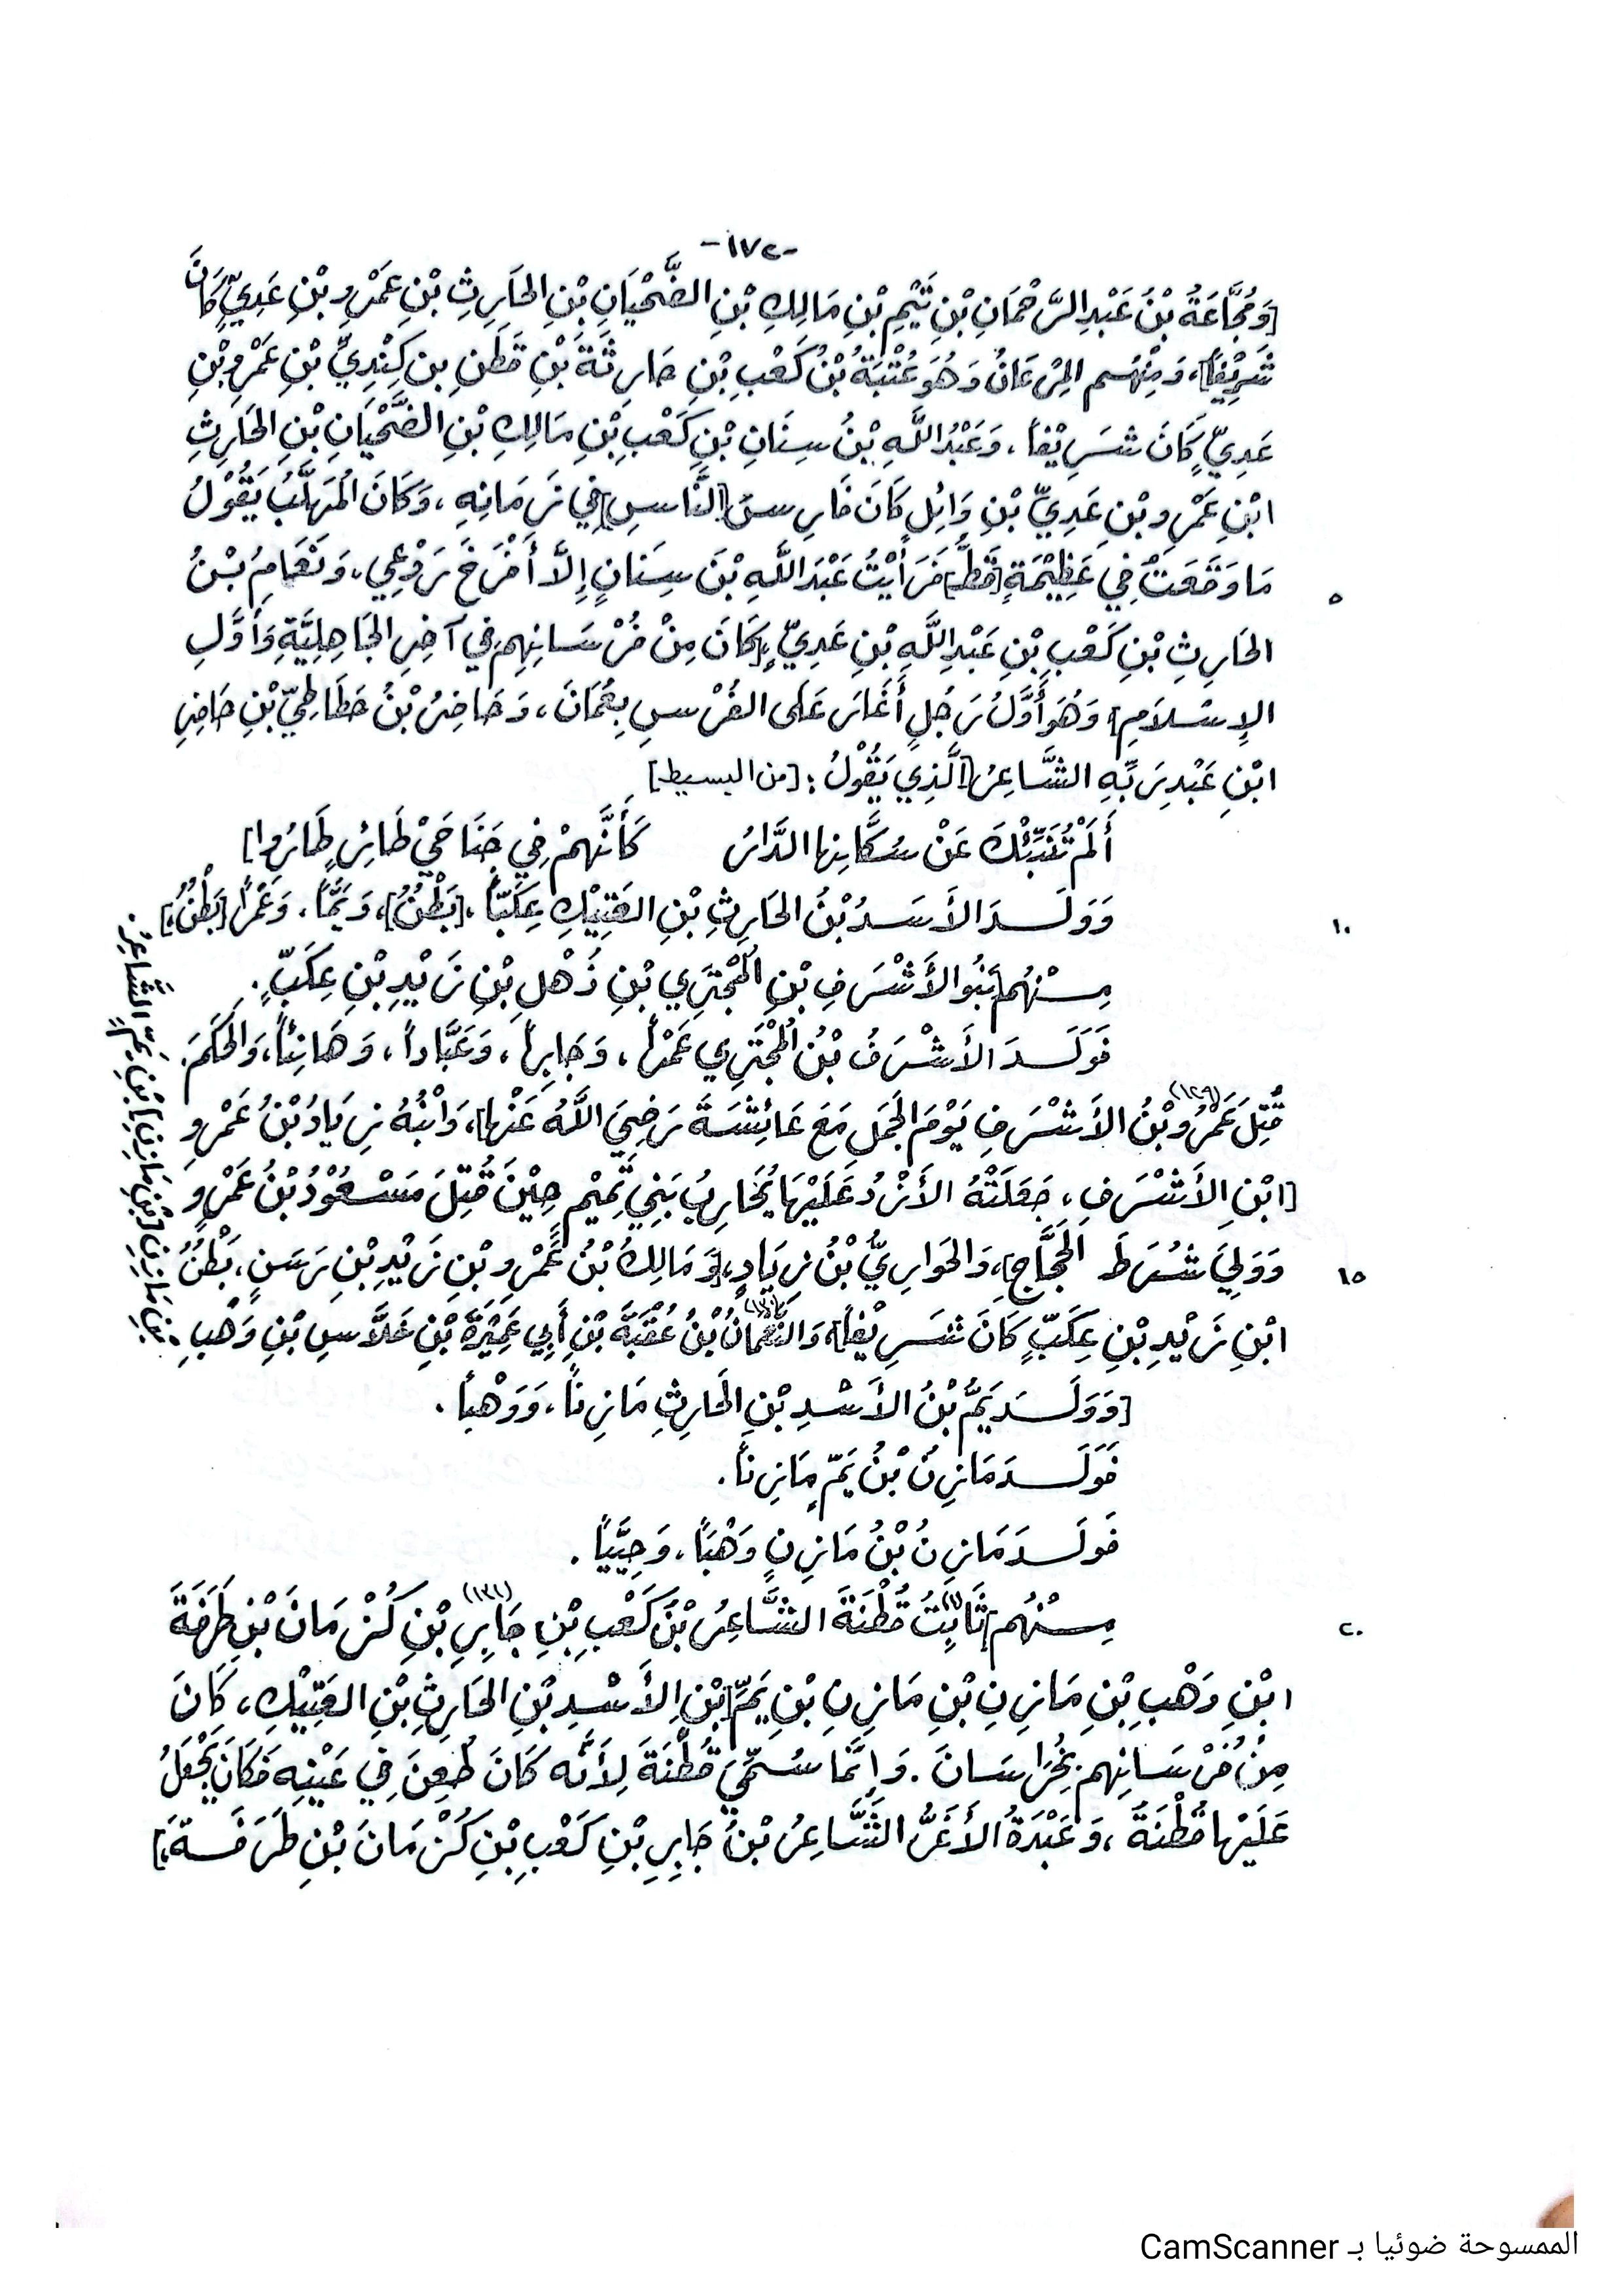 -١٧٢-
[وَمُجَّاعَةُ بْنُ عَبْدِ الرَّحْمَانِ بْنِ تَيْمِ بْنِ مَالِكِ بْنِ الضَّحْيَانِ بْنِ الحَارِثِ بْنِ عَمْرِو بْنِ عَدِيٍّ كَانَ
شَرِيْفاً]، وَمِنْهُم المِرْعَانُ وَهُوَ عُتْبَةُ بْنُ كَعْبِ بْنِ حَارِثَةَ بْنِ قَطَنِ بن كِنْدِيِّ بْنِ عَمْرِو بْنِ
عَدِيٍّ كَانَ شَرِيْفاً، وَعَبْدُ اللَّهِ بْنُ سِنَانِ بْنِ كَعْبِ بْنِ مَالِكِ بْنِ الضَّحْيَانِ بْنِ الحَارِثِ
ابْنِ عَمْرِو بْنِ عَدِيِّ بْنِ وَائِلِ كَانَ فَارِسَ [النَّاسِ] فِي زَمَانِهِ، وَكَانَ المُهَلَّبُ يَقُوْلُ
مَا وَقَعَتُ فِي عَظِيْمَةٍ [قَطُّ] فَرَأَيْتُ عَبْدَ اللَّهِ بْنَ سِنَانٍ إِلاَّ أَفْرَخَ رَوْعِي، وَنَعَامِ بْنُ
٥
الحَارِثِ بْنِ كَعْبِ بْنِ عَبْدِ اللَّهِ بْنِ عَدِيٍّ [كَانَ مِنْ فُرْسَانِهِم فِي آخِرِ الجَاهِلِيَّةِ وَأَوَّلِ
الإِسْلاَمِ] وَهُوَ أَوَّلُ رَجُلٍ أَغَارَ عَلَى الفُرْسِ بِعُمَانَ، وَحَاضِرُ بْنُ حَطَاطِيِّ بْنِ حَاضِرِ
ابْنِ عَبْدِ رَبِّهِ الشَّاعِرُ [الَّذِي يَقُوْلُ: [من البسيط]
أَلَمْ تُنَبِّئْكَ عَنْ سُكَّانِهَا الدَّارُ كَأَنَّهُمْ فِي جَنَاحَيْ طَائِرٍ طَارُوا]
وَوَلَدَ الأَسَدُ بْنُ الحَارِثِ بْنِ العَتِيْكِ عِكَبّاً، [بَطْنُ]، وَيَمّاً، وَعَمْراً [بَطْنُ]
١٠
مِنْهُم [بَنُو الأَشْرَفِ بْنِ المُجْتَرِي بْنِ ذُهْلِ بْنِ زَيْدِ بْنِ عِكَبٍّ.
فَوَلَدَ الأَشْرَفُ بْنُ المُجْتَرِي عَمْراً، وَجَابِراً، وَعَبَّاداً، وَهَانِئاً، وَالحَكَمَ.
قُتِلَ عَمْرُو (١٢٩) بْنُ الأَشْرَفِ يَوْمَ الجَمَلِ مَعَ عَائِشَةَ رَضِيَ اللَّهُ عَنْهَا]، وَابْنُهُ زِيَادُ بْنُ عَمْرِو
[ابْنِ الأَشْرَفِ، جَعَلَتْهُ الأَزْدُ عَلَيْهَا يُحَارِبُ بَنِي تَمِيْمٍ حِيْنَ قُتِلَ مَسْعُوْدُ بْنُ عَمْرٍو
وَوَلِيَ شُرَطَ الحَجَّاجِ]، وَالحَوَارِيُّ بْنُ زِيَادٍ، [وَمَالِكُ بْنُ عَمْرِو بْنِ زَيْدِ بْنِ رَسَنٍ، بَطْنُ
١٥
ابْنِ زَيْدِ بْنِ عِكَبٍّ كَانَ شَرِيْفاً]، وَالنُّعْمَانُ (١٣٠) بْنُ عُقْبَةَ بْنِ أَبِي عَمِيْرَةَ بْنِ عَلاَّسِ بْنِ وَهْبِ
بْنِ مَازِنِ [بْنِ مَازِنِ] بْنِ يَمٍّ الشَّاعِرُ.
[وَوَلَدَ يَمُّ بْنُ الأَسْدِ بْنِ الحَارِثِ مَازِناً، وَوَهْباً.
فَوَلَدَ مَازِنُ بْنُ يَمٍّ مَازِناً.
فَوَلَدَ مَازِنُ بْنُ مَازِنٍ وَهْباً، وَحِيَيّاً.
مِنْهُم] ثَابِتُ قُطْنَةَ الشَّاعِرُ بْنُ كَعْبِ بْنِ جَابِرِ (١٣١) بْنِ كُزْمَانَ بْنِ طَرَفَةَ
٢٠
ابْنِ وَهْبِ بْنِ مَازِنِ بْنِ مَازِنِ بْنِ يَمِّ [بْنِ الأَسْدِ بْنِ الحَارِثِ بْنِ العَتِيْكِ، كَانَ
مِنْ فُرْسَانِهِم بِخُرَاسَانَ. وَإِنَّمَا سُمِّيَ قُطْنَةَ لِأَنَّه كَانَ طُعِنَ فِي عَيْنِهِ فَكَانَ يَجْعَلُ
عَلَيْهَا قُطْنَةً، وَعَبْدَةُ الأَغَرُّ الشَّاعِرُ بْنُ جَابِرِ بْنِ كَعْبِ بْنِ كُزْمَانَ بْنِ طَرَفَةَ]
الممسوحة ضوئيا بـ CamScanner